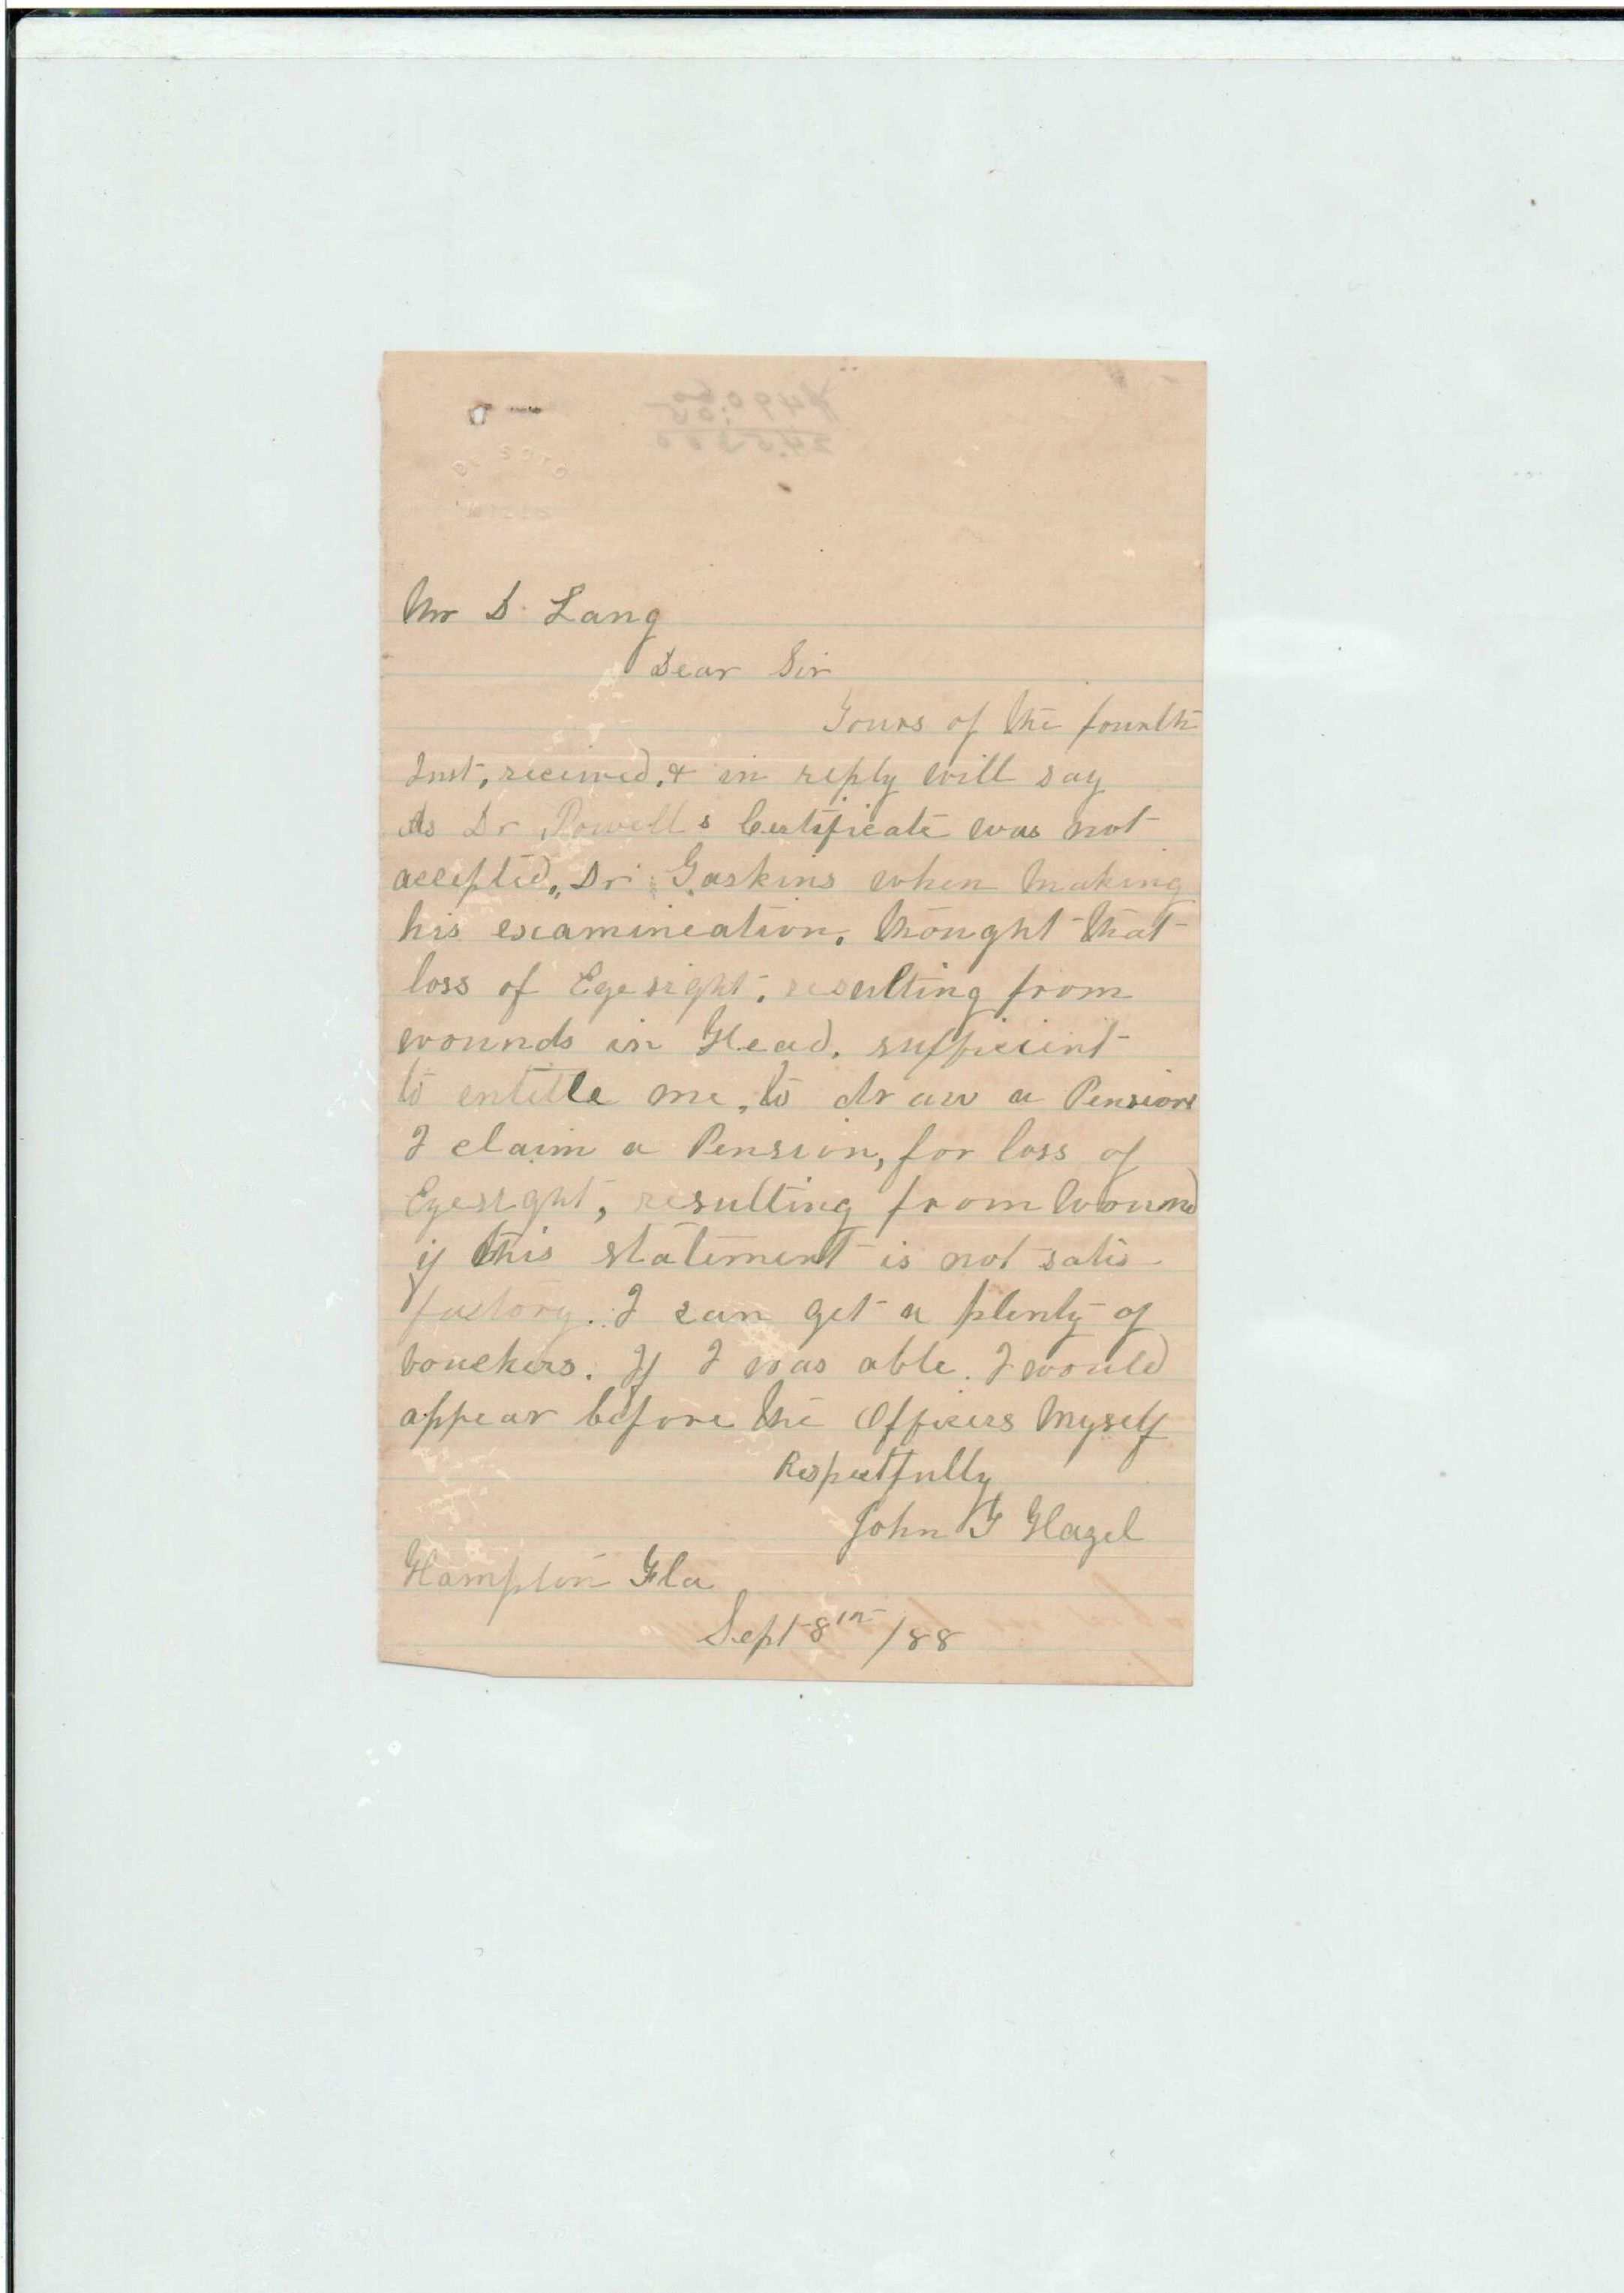 DE SOTO
Mr D. Lang
Dear Sir
Yours of the fourth
Inst, received, & in reply will say
As Dr Powells Certificate was not
accepted, Dr Gaskins when making
his examineation, thought that
loss of Eyesight, resulting from
wounds in Head, sufficient
to entitle me, to draw a Pension
I claim a Pension, for loss of
Eyesight, resulting from Wound
if this statement is not satis-
factory. I can get a plenty of
vouchers. If I was able. I would
appear before the Officers Myself
Respectfully
John G Hazel
Hampton Fla
Sept 8th /88